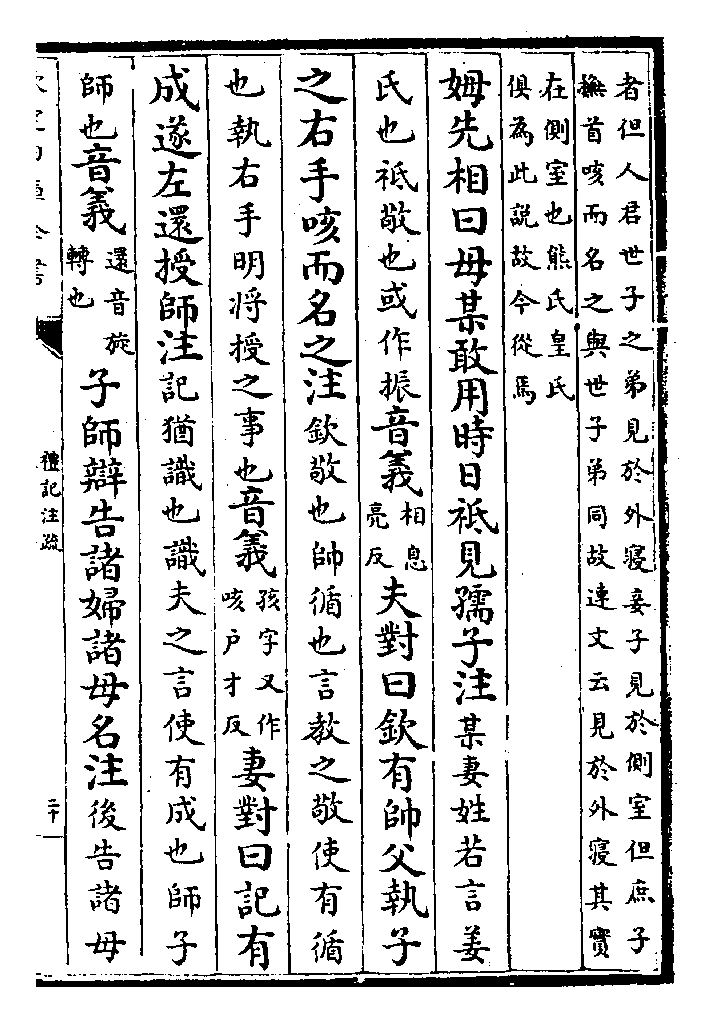 者但人君世子之弟見於外寢妾子見於側室但庶子
撫首咳而名之與世子弟同故連文云見於外寢其實
在側室也熊氏皇氏
俱為此説故今從焉
姆先相曰母某敢用時日祗見孺子注某妻姓若言姜
氏也祗敬也或作振音義相息
亮反夫對曰欽有帥父執子
之右手咳而名之注欽敬也帥循也言教之敬使有循
也執右手明將授之事也音義孩字又作
咳户才反妻對曰記有
成遂左還授師注記猶識也識夫之言使有成也師子
師也音義還音旋
轉也子師辯告諸婦諸母名注後告諸母
禮記注疏
二十